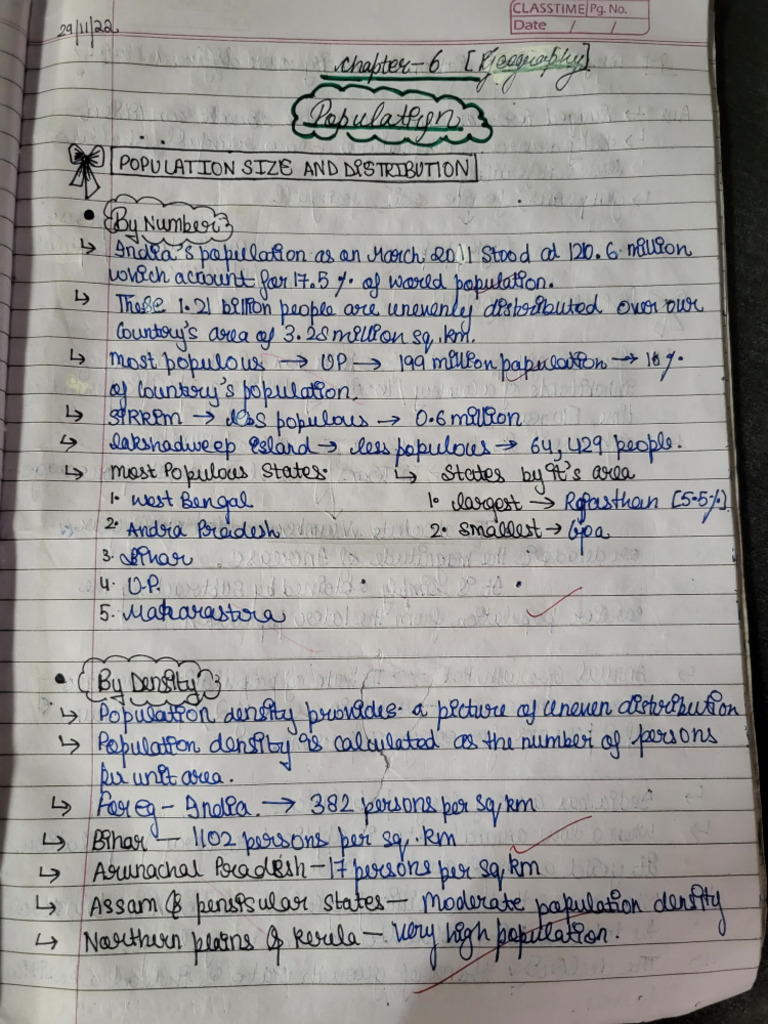 CLASSTIME Pg. No.
Date / /
29/11/22
Chapter-6 [Geography]
Population
POPULATION SIZE AND DISTRIBUTION
• By Number
↳ India's population as on March 2011 stood at 120.6 million
which account for 17.5 % of world population.
↳ These 1.21 billion people are unevenly distributed over our
Country's area of 3.28 million sq. km.
↳ most populous → UP → 199 million population → 16 %
of Country's population.
↳ SIKKIM → less populous → 0.6 million
↳ Lakshadweep Island → less populous → 64,429 people.
↳ most Populous States. ↳ States by it's area
1. West Bengal 1. largest → Rajasthan [5.5%]
2. Andra Pradesh 2. smallest → Goa
3. Bihar
4. U.P.
5. Maharastora
• By Density
↳ Population density provides a picture of uneven distribution
↳ Population density is calculated as the number of persons
per unit area.
↳ For eg - India → 382 persons per sq km
↳ Bihar — 1102 persons per sq. km
↳ Arunachal Pradesh - 17 persons per sq km
↳ Assam & penisular States — Moderate population density
↳ Northern plains & Kerela — very high population.